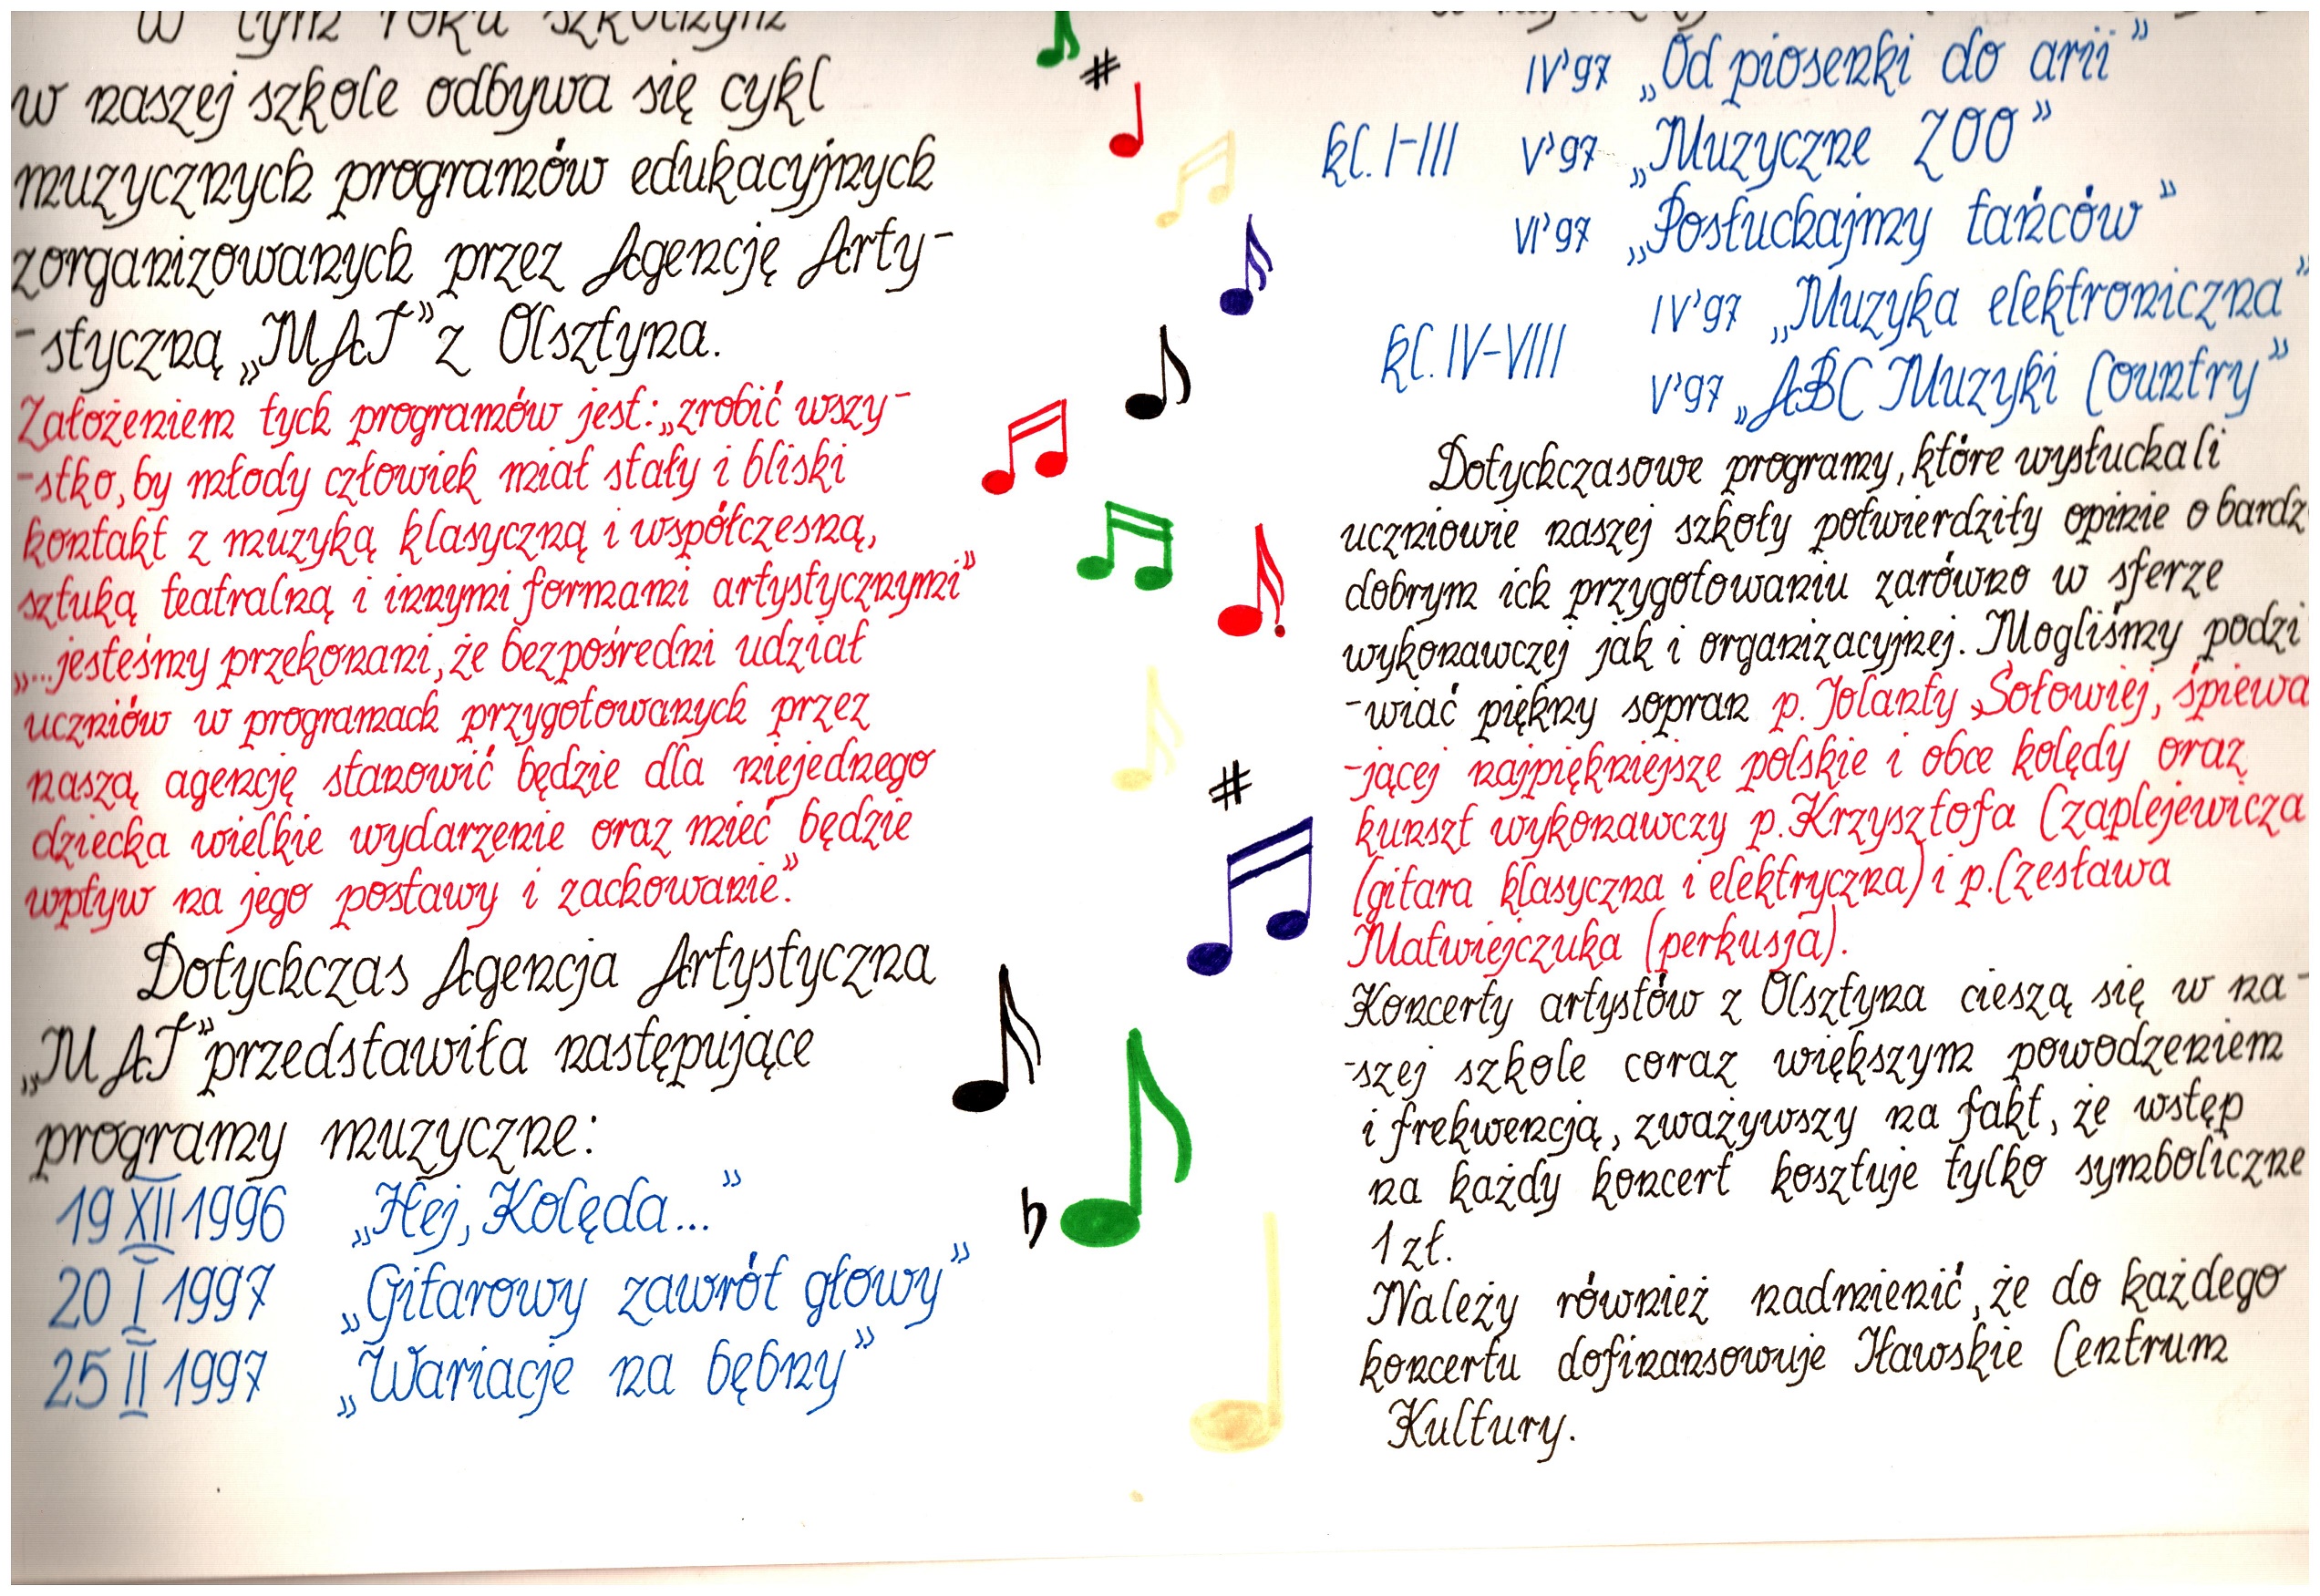 W tym roku szkolnym
w naszej szkole odbywa się cykl
muzycznych programów edukacyjnych
zorganizowanych przez Agencję Arty-
-styczną „MAT" z Olsztyna.
Założeniem tych programów jest: „zrobić wszy-
-stko, by młody człowiek miał stały i bliski
kontakt z muzyką klasyczną i współczesną,
sztuką teatralną i innymi formami artystycznymi"
„...jesteśmy przekonani, że bezpośredni udział
uczniów w programach przygotowanych przez
naszą agencję stanowić będzie dla niejednego
dziecka wielkie wydarzenie oraz mieć będzie
wpływ na jego postawy i zachowanie."
Dotychczas Agencja Artystyczna
„MAT" przedstawiła następujące
programy muzyczne:
19 XII 1996 „Hej, Kolęda..."
20 I 1997 „Gitarowy zawrót głowy"
25 II 1997 „Wariacje na bębny"
IV'97 „Od piosenki do arii"
kl. I-III V'97 „Muzyczne ZOO"
VI'97 „Posłuchajmy tańców"
IV'97 „Muzyka elektroniczna"
kl. IV-VIII
V'97 „ABC Muzyki Country"
Dotychczasowe programy, które wysłuchali
uczniowie naszej szkoły potwierdziły opinie o bardz
dobrym ich przygotowaniu zarówno w sferze
wykonawczej jak i organizacyjnej. Mogliśmy podzi
-wiać piękny sopran p. Jolanty Sołowiej, śpiewa
-jącej najpiękniejsze polskie i obce kolędy oraz
kunszt wykonawczy p. Krzysztofa Czaplejewicza
(gitara klasyczna i elektryczna) i p. Czesława
Matwiejczuka (perkusja).
Koncerty artystów z Olsztyna cieszą się w na-
-szej szkole coraz większym powodzeniem
i frekwencją, zważywszy na fakt, że wstęp
na każdy koncert kosztuje tylko symboliczne
1 zł.
Należy również nadmienić, że do każdego
koncertu dofinansowuje Iławskie Centrum
Kultury.